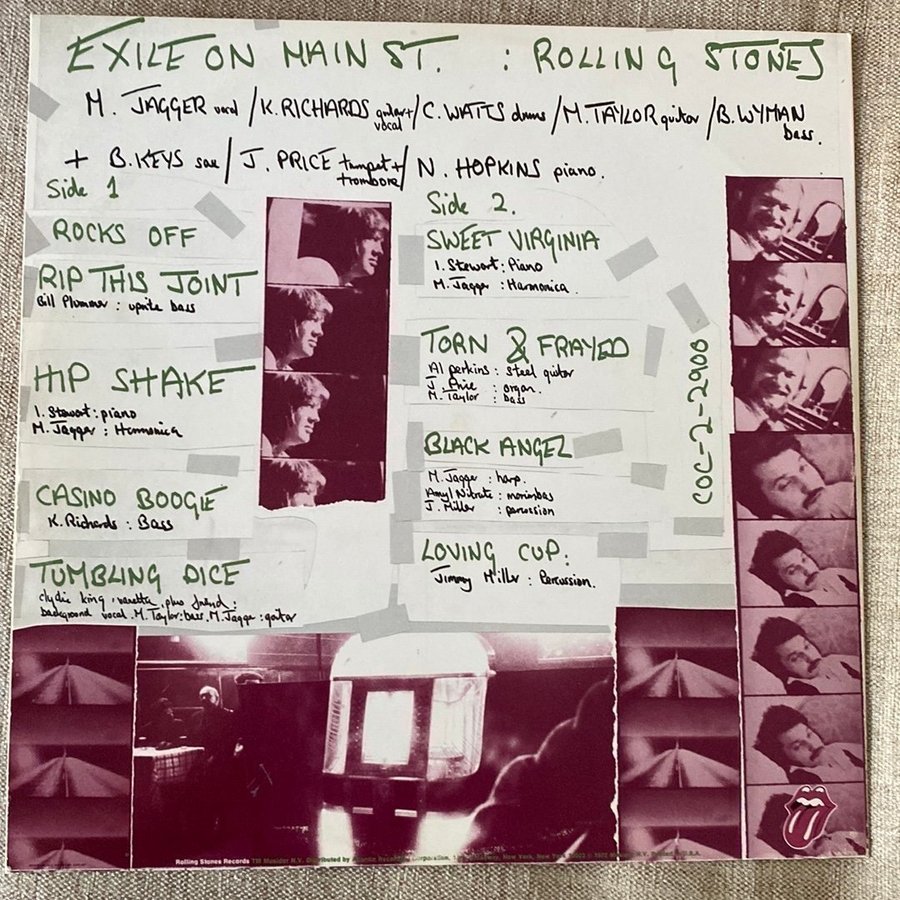 EXILE ON MAIN ST. : ROLLING STONES
M. JAGGER vocal / K. RICHARDS guitar + vocal / C. WATTS drums / M. TAYLOR guitar / B. WYMAN bass.
+ B. KEYS sax / J. PRICE trumpet + trombone / N. HOPKINS piano.
Side 1
ROCKS OFF
RIP THIS JOINT
Bill Plummer : uprite bass
HIP SHAKE
I. Stewart : piano
M. Jagger : Harmonica
CASINO BOOGIE
K. Richards : Bass
TUMBLING DICE
clydie king, vanetta, plus friend :
background vocal. M. Taylor : bass. M. Jagger : guitar
Side 2.
SWEET VIRGINIA
I. Stewart : Piano
M. Jagger : Harmonica.
TORN & FRAYED
Al perkins : steel guitar
J. Price : organ.
M. Taylor : bass
BLACK ANGEL
M. Jagger : harp.
Amyl Nitrate : marimbas
J. Miller : percussion
LOVING CUP.
Jimmy Miller : Percussion.
COC-2-2900
Rolling Stones Records TM Musidor N.V. Distributed by Atlantic Recording Corporation, New York, New York